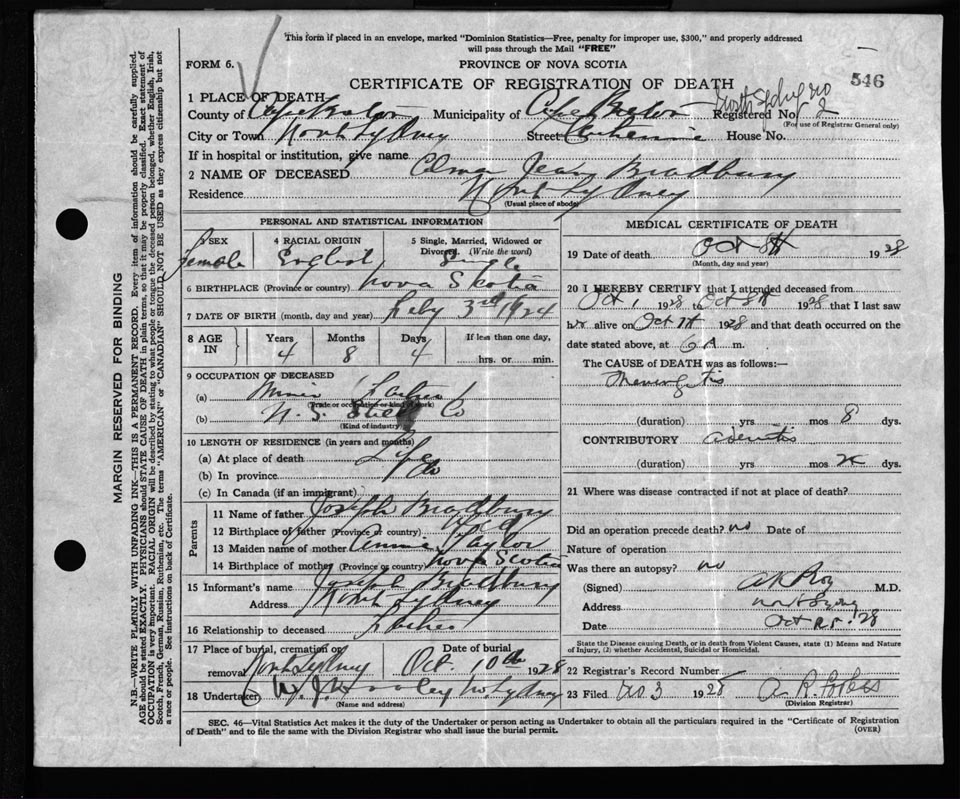 This form if placed in an envelope, marked "Dominion Statistics—Free, penalty for improper use, $300," and properly addressed
will pass through the Mail "FREE"
FORM 6.
PROVINCE OF NOVA SCOTIA
CERTIFICATE OF REGISTRATION OF DEATH
546
1 PLACE OF DEATH
County of Cape Breton Municipality of Cape Breton Registered No. 2
(For use of Registrar General only)
City or Town North Sydney Street Catherine House No.
If in hospital or institution, give name
2 NAME OF DECEASED Jean Bradbury
Residence North Sydney
(Usual place of abode)
PERSONAL AND STATISTICAL INFORMATION
3 SEX Female
4 RACIAL ORIGIN English
5 Single, Married, Widowed or Divorced (Write the word) Single
6 BIRTHPLACE (Province or country) Nova Scotia
7 DATE OF BIRTH (month, day and year) Feby 3rd 1924
8 AGE IN
Years 4
Months 8
Days 4
If less than one day,
hrs. or min.
9 OCCUPATION OF DECEASED
(a) Miner
(Trade or occupation or kind of work)
(b) N. S. Steel Co
(Kind of industry)
10 LENGTH OF RESIDENCE (in years and months)
(a) At place of death Life
(b) In province Do
(c) In Canada (if an immigrant)
Parents
11 Name of father Joseph Bradbury
12 Birthplace of father (Province or country)
13 Maiden name of mother Annie Taylor
14 Birthplace of mother (Province or country) Nova Scotia
15 Informant's name Joseph Bradbury
Address North Sydney
16 Relationship to deceased Father
17 Place of burial, cremation or removal North Sydney
Date of burial Oct. 10th 1928
18 Undertaker W. J. No. Sydney
(Name and address)
MEDICAL CERTIFICATE OF DEATH
19 Date of death Oct 8th 1928
(Month, day and year)
20 I HEREBY CERTIFY that I attended deceased from
Oct 1, 1928 to Oct 8th 1928 that I last saw
her alive on Oct 7th 1928 and that death occurred on the
date stated above, at 6 A m.
The CAUSE of DEATH was as follows:—
Meningitis
(duration) yrs mos 8 dys.
CONTRIBUTORY
(duration) yrs mos dys.
21 Where was disease contracted if not at place of death?
Did an operation precede death? no Date of
Nature of operation
Was there an autopsy? no
(Signed) M.D.
Address North Sydney
Date Oct 28
State the Disease causing Death, or in death from Violent Causes, state (1) Means and Nature of Injury, (2) whether Accidental, Suicidal or Homicidal.
22 Registrar's Record Number
23 Filed 1928
(Division Registrar)
SEC. 46—Vital Statistics Act makes it the duty of the Undertaker or person acting as Undertaker to obtain all the particulars required in the "Certificate of Registration
of Death" and to file the same with the Division Registrar who shall issue the burial permit.
(OVER)
MARGIN RESERVED FOR BINDING
N.B.—WRITE PLAINLY WITH UNFADING INK—THIS IS A PERMANENT RECORD. Every item of information should be carefully supplied.
AGE should be stated EXACTLY. PHYSICIANS should STATE CAUSE OF DEATH in plain terms, so that it may be properly classified. Exact statement of
OCCUPATION is very important. RACIAL ORIGIN will be described by stating to what people or tongue the deceased person belonged, whether English, Irish,
Scotch, French, German, Russian, Ruthenian, etc. The terms "AMERICAN" or "CANADIAN" SHOULD NOT BE USED as they express citizenship but not
a race or people. See instructions on back of Certificate.